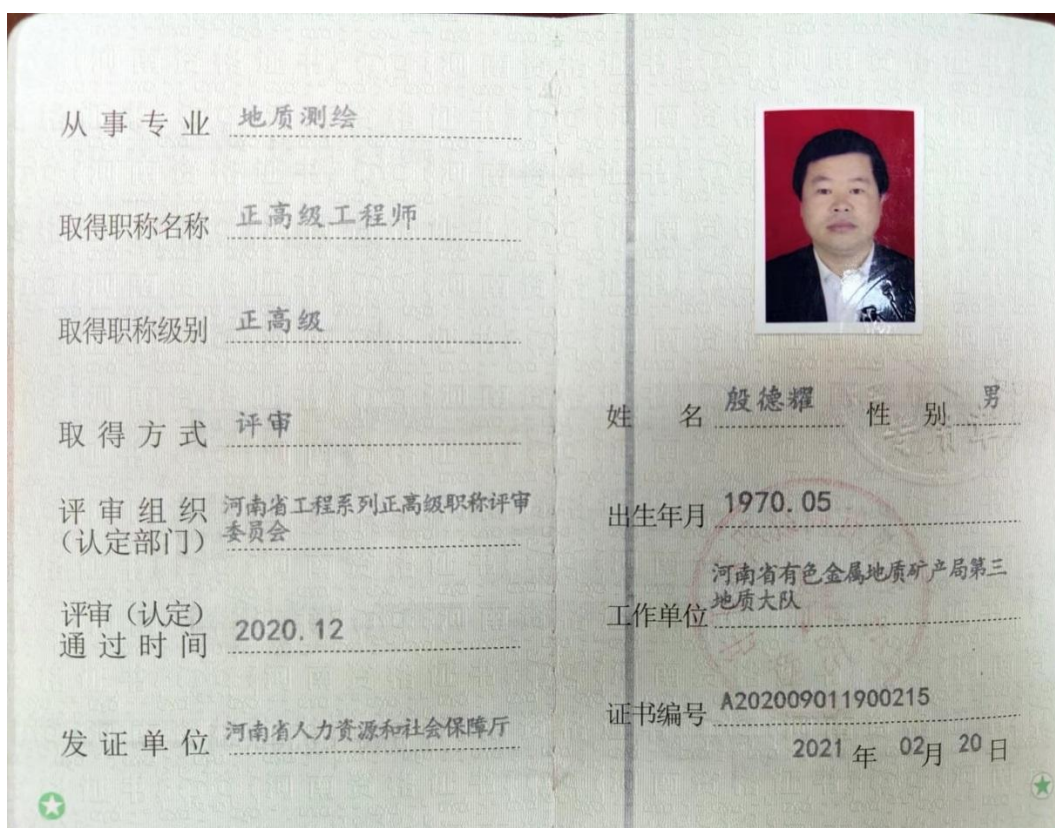 从事专业 地质测绘
取得职称名称 正高级工程师
取得职称级别 正高级
取得方式 评审
评审组织 河南省工程系列正高级职称评审
（认定部门） 委员会
评审（认定）
通过时间 2020.12
发证单位 河南省人力资源和社会保障厅
姓名 殷德耀 性别 男
出生年月 1970.05
河南省有色金属地质矿产局第三
工作单位 地质大队
证书编号 A202009011900215
2021年02月20日